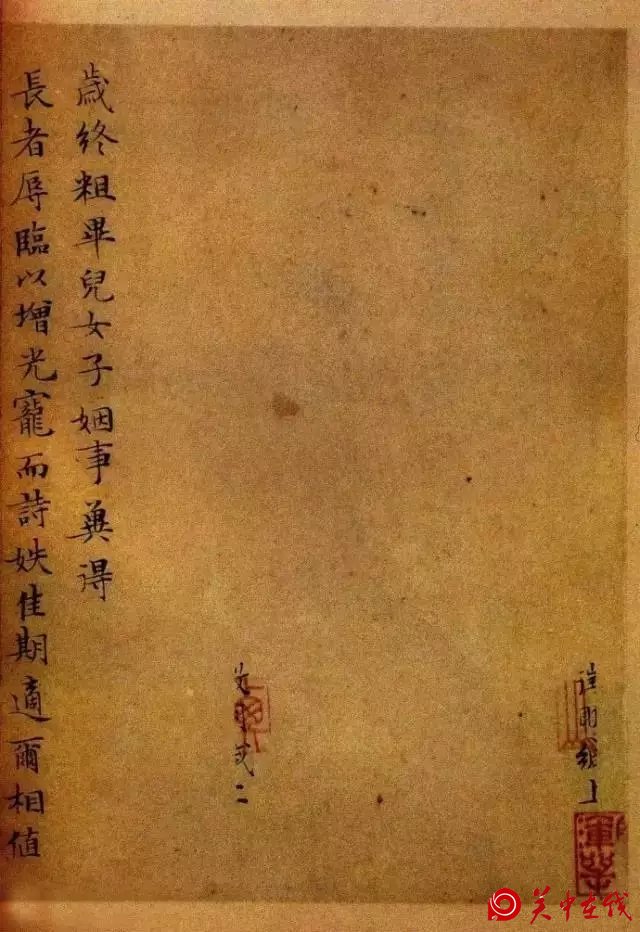 歲終粗畢兒女子姻事冀得
長者辱臨以增光寵而詩妷佳期適爾相值
二
上
关中在线